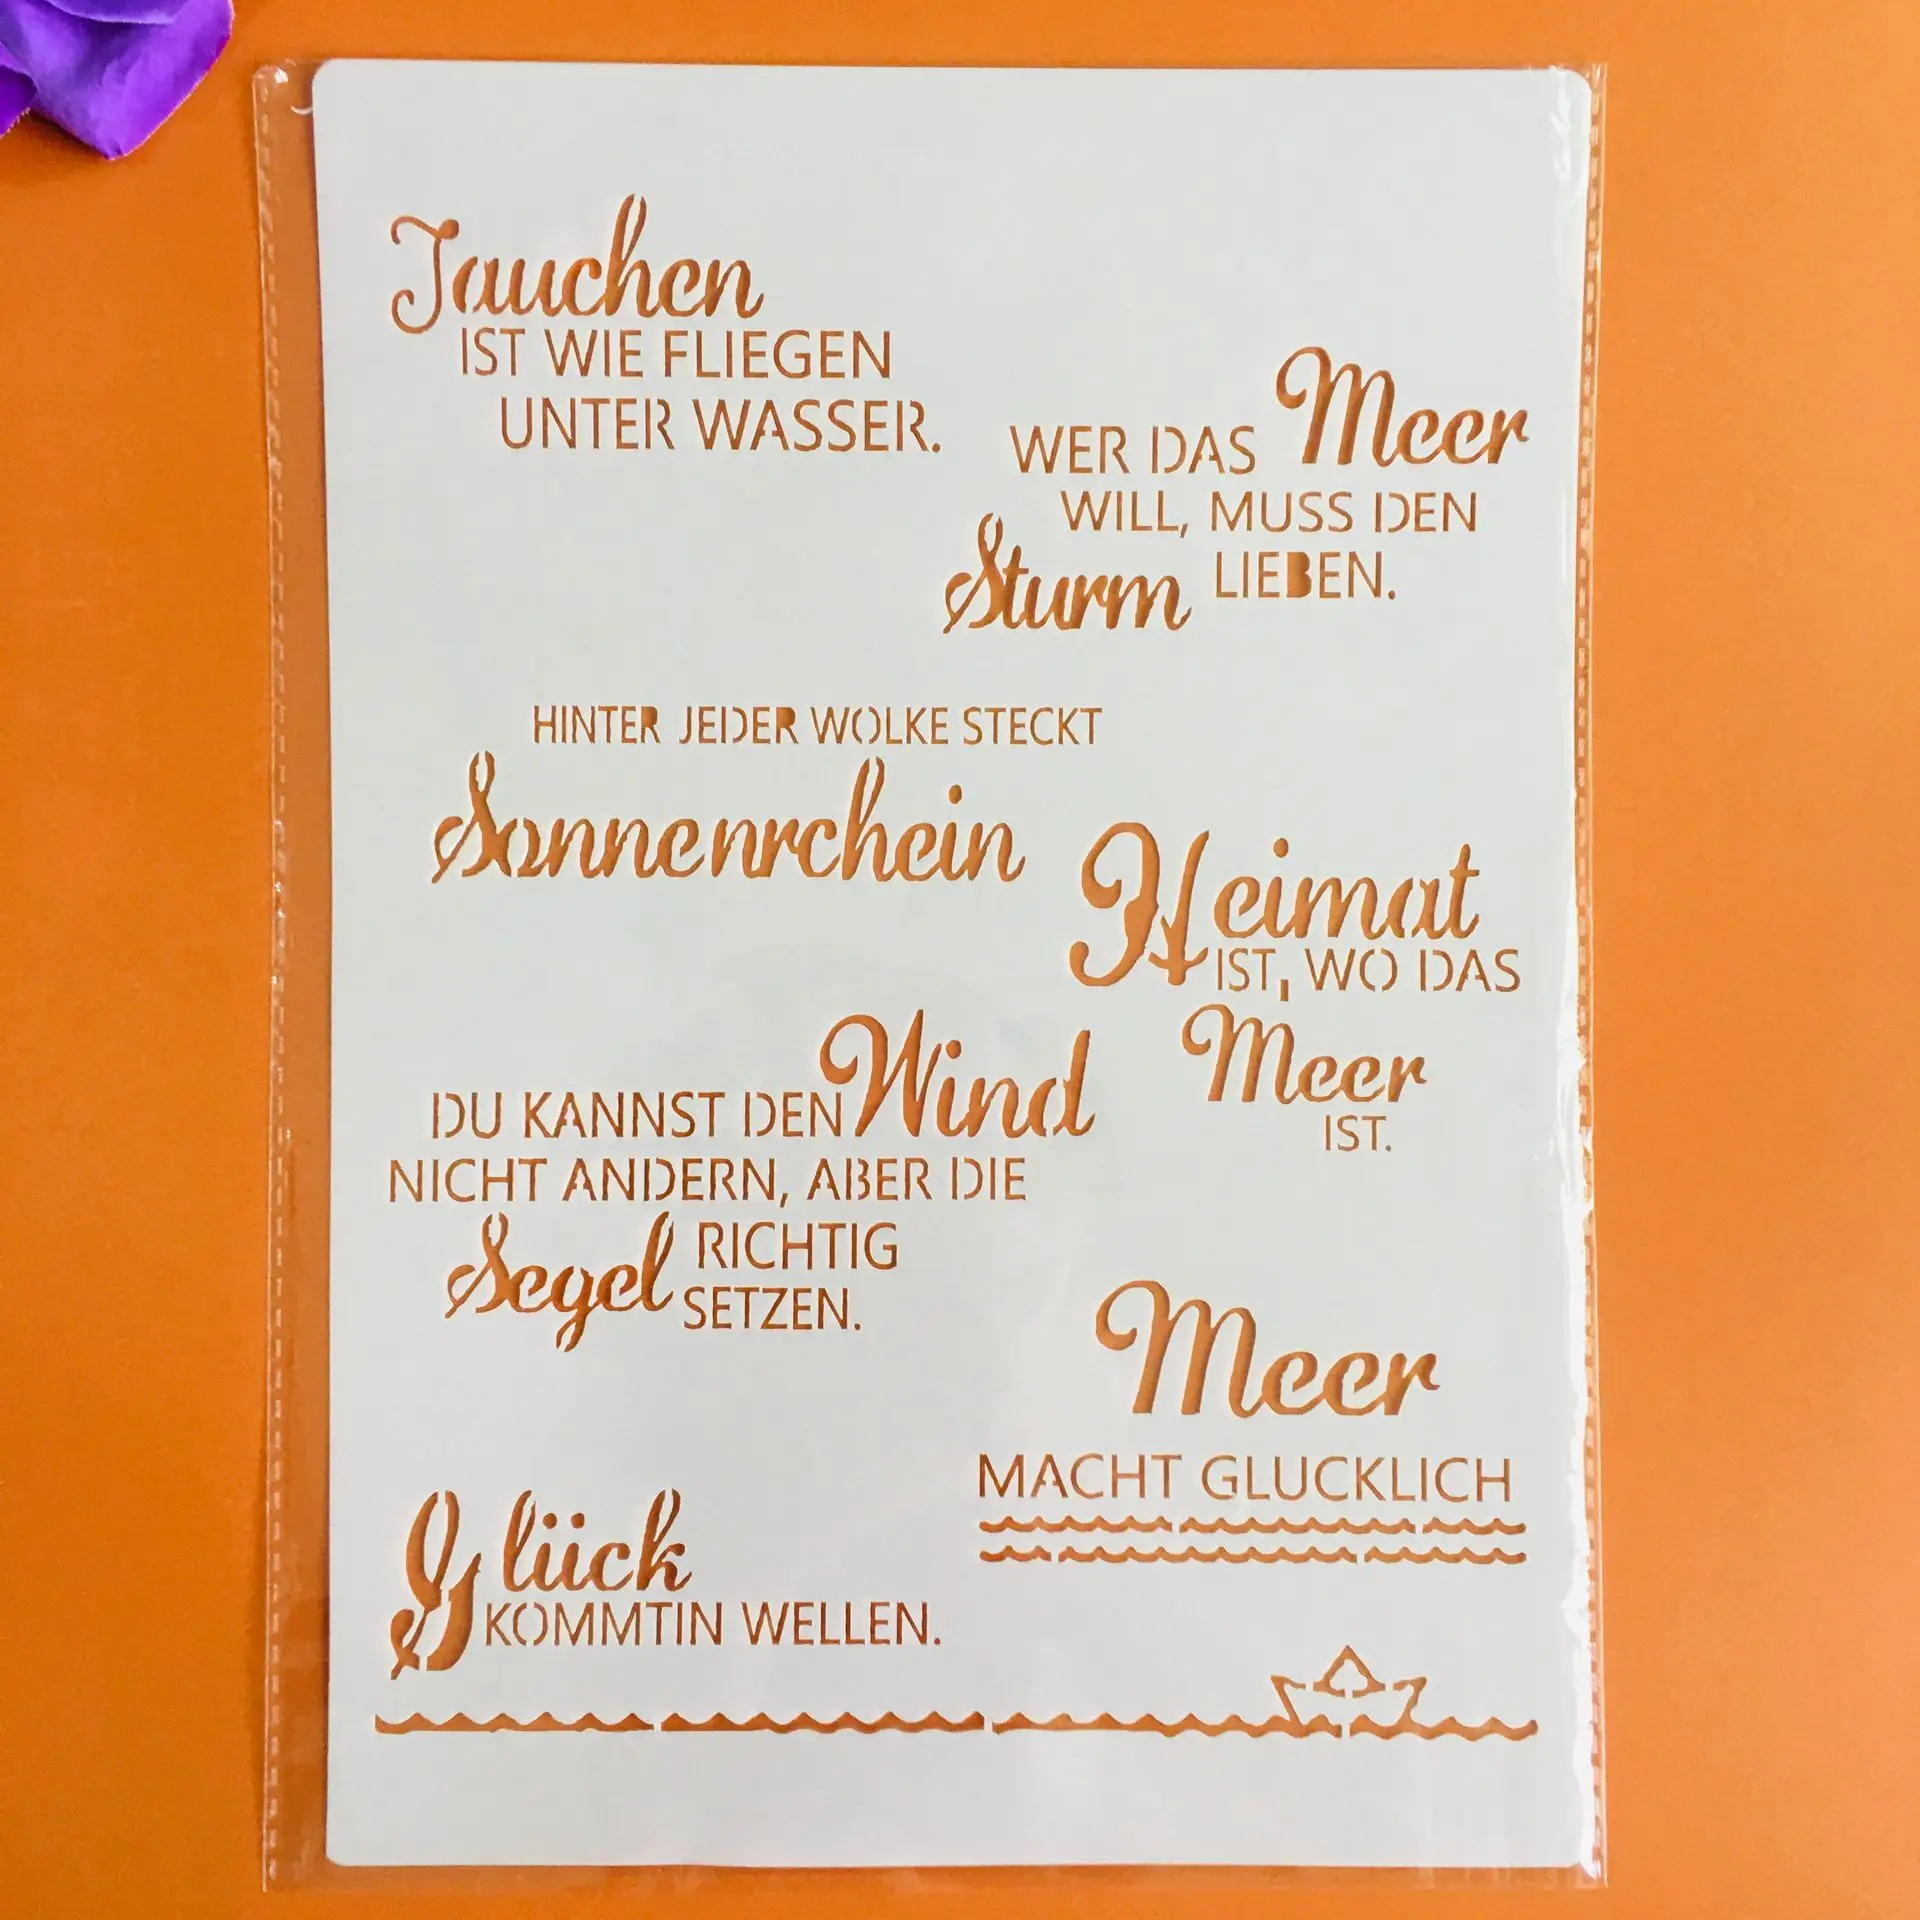 Tauchen
IST WIE FLIEGEN
UNTER WASSER.
WER DAS Meer
WILL, MUSS DEN
Sturm LIEBEN.
HINTER JEDER WOLKE STECKT
Sonnenrchein
Heimat
IST, WO DAS
Meer
IST.
DU KANNST DEN Wind
NICHT ANDERN, ABER DIE
Segel RICHTIG
SETZEN.
Meer
MACHT GLUCKLICH
Glück
KOMMTIN WELLEN.